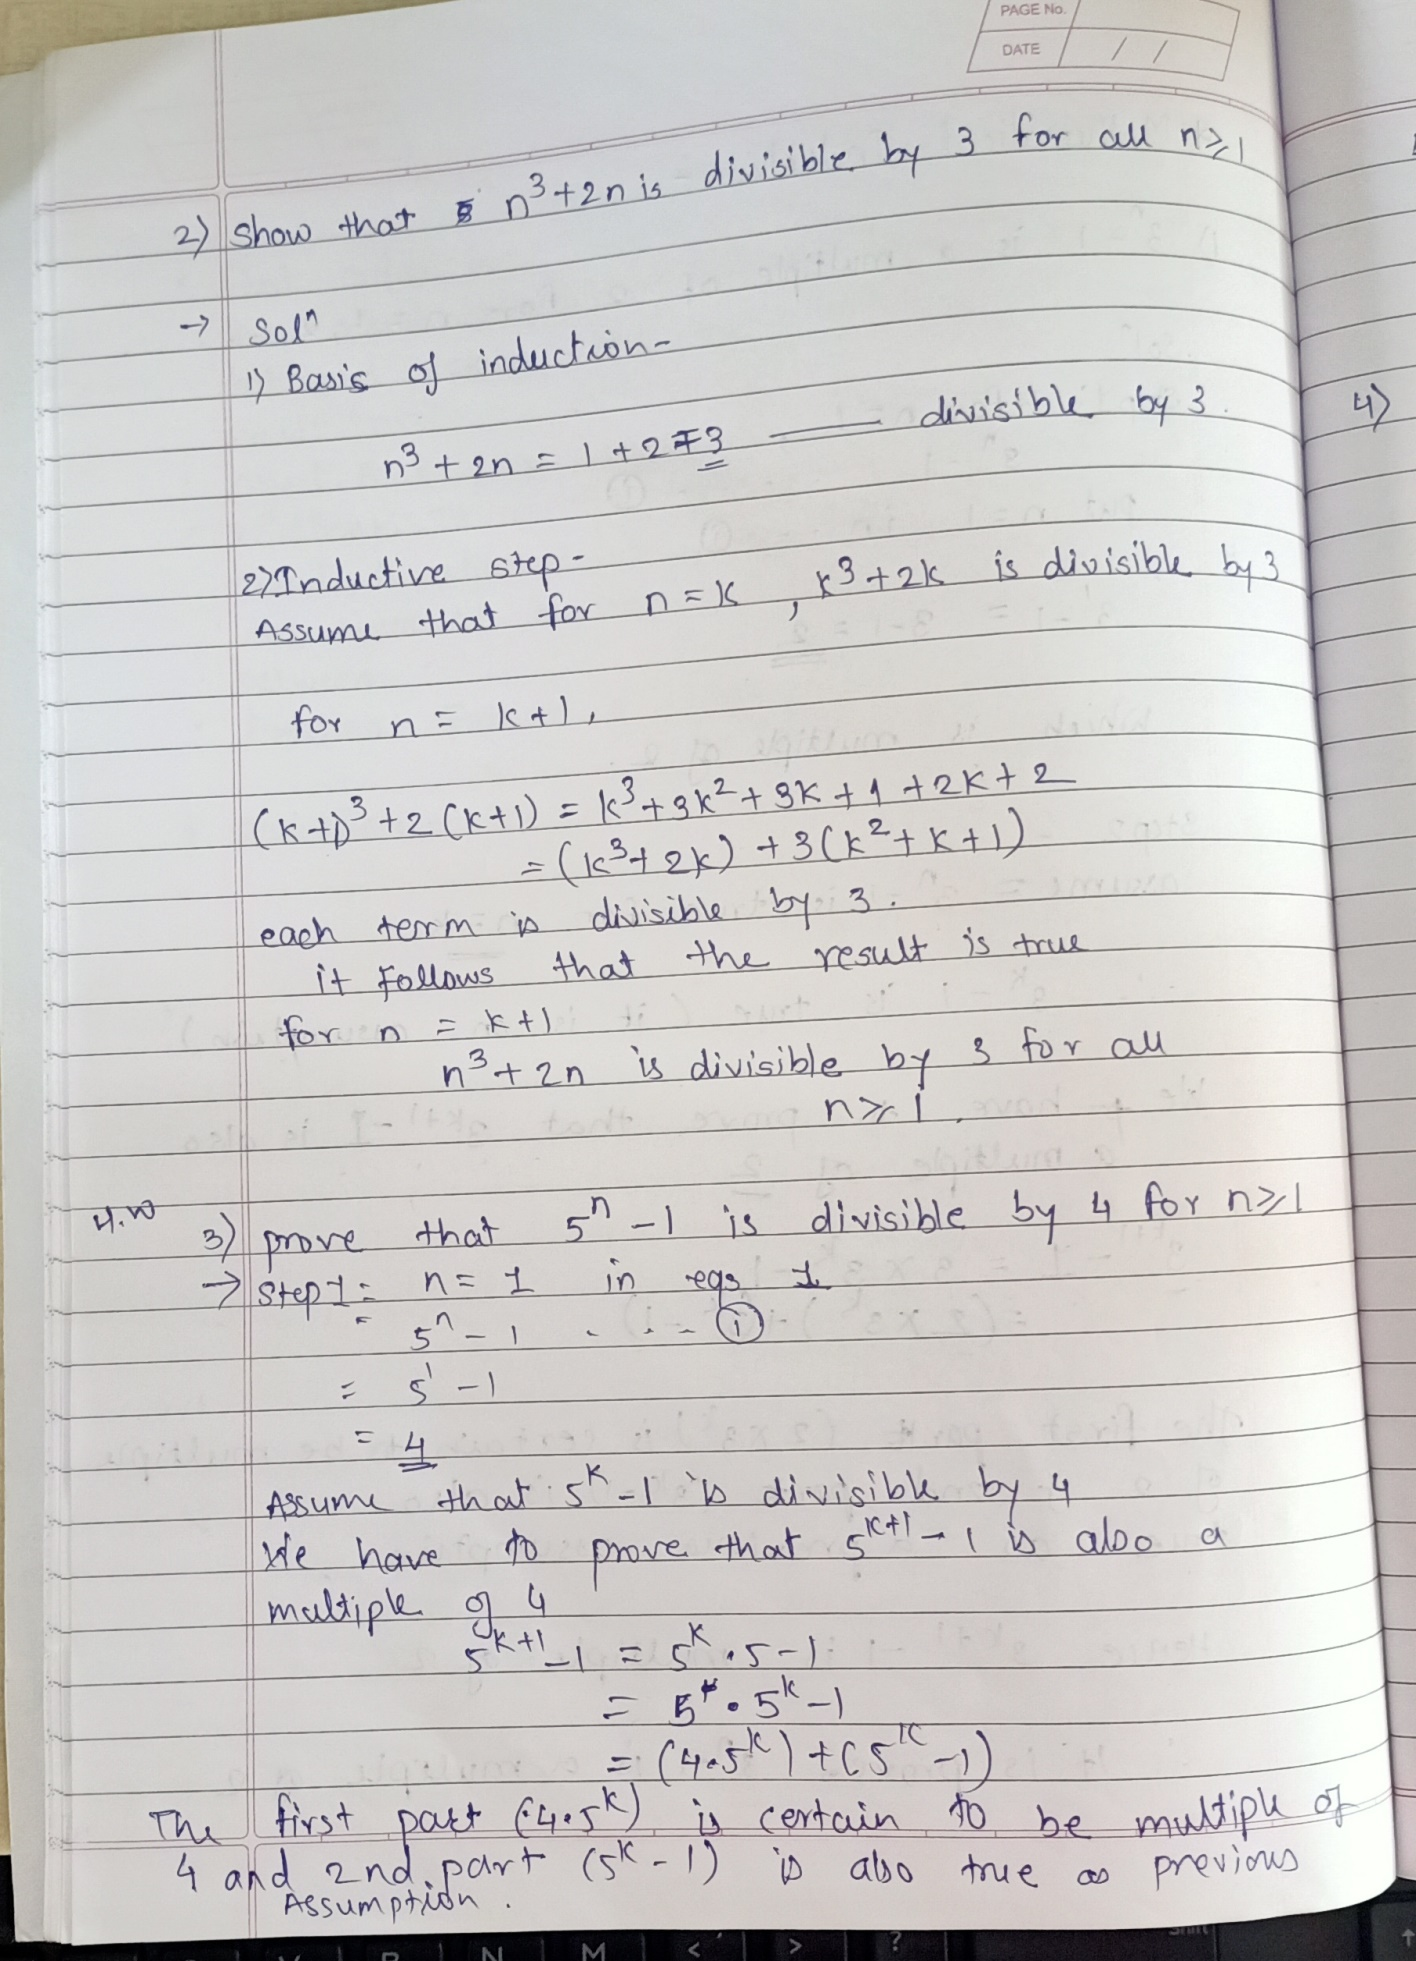 PAGE No.
DATE / /
2) Show that n³+2n is divisible by 3 for all n≥1
→ Solⁿ
1) Basis of induction-
n³ + 2n = 1 + 2 = 3 —— divisible by 3.
4)
2) Inductive step-
Assume that for n = k, k³+2k is divisible by 3
for n = k+1,
(k+1)³ + 2(k+1) = k³+3k²+3k+1+2k+2
= (k³+2k) + 3(k²+k+1)
each term is divisible by 3.
it follows that the result is true
for n = k+1
n³+2n is divisible by 3 for all
n≥1.
H.W
3) prove that 5ⁿ-1 is divisible by 4 for n≥1
→ Step 1: n = 1 in eqs 1
5ⁿ-1 . . - (i)
= 5¹-1
= 4
Assume that 5ᵏ-1 is divisible by 4
We have to prove that 5ᵏ⁺¹-1 is also a
multiple of 4
5ᵏ⁺¹-1 = 5ᵏ.5-1
= 5.5ᵏ-1
= (4.5ᵏ)+(5ᵏ-1)
The first part (4.5ᵏ) is certain to be multiple of
4 and 2nd part (5ᵏ-1) is also true as previous
Assumption.
N M < > ?
Shift